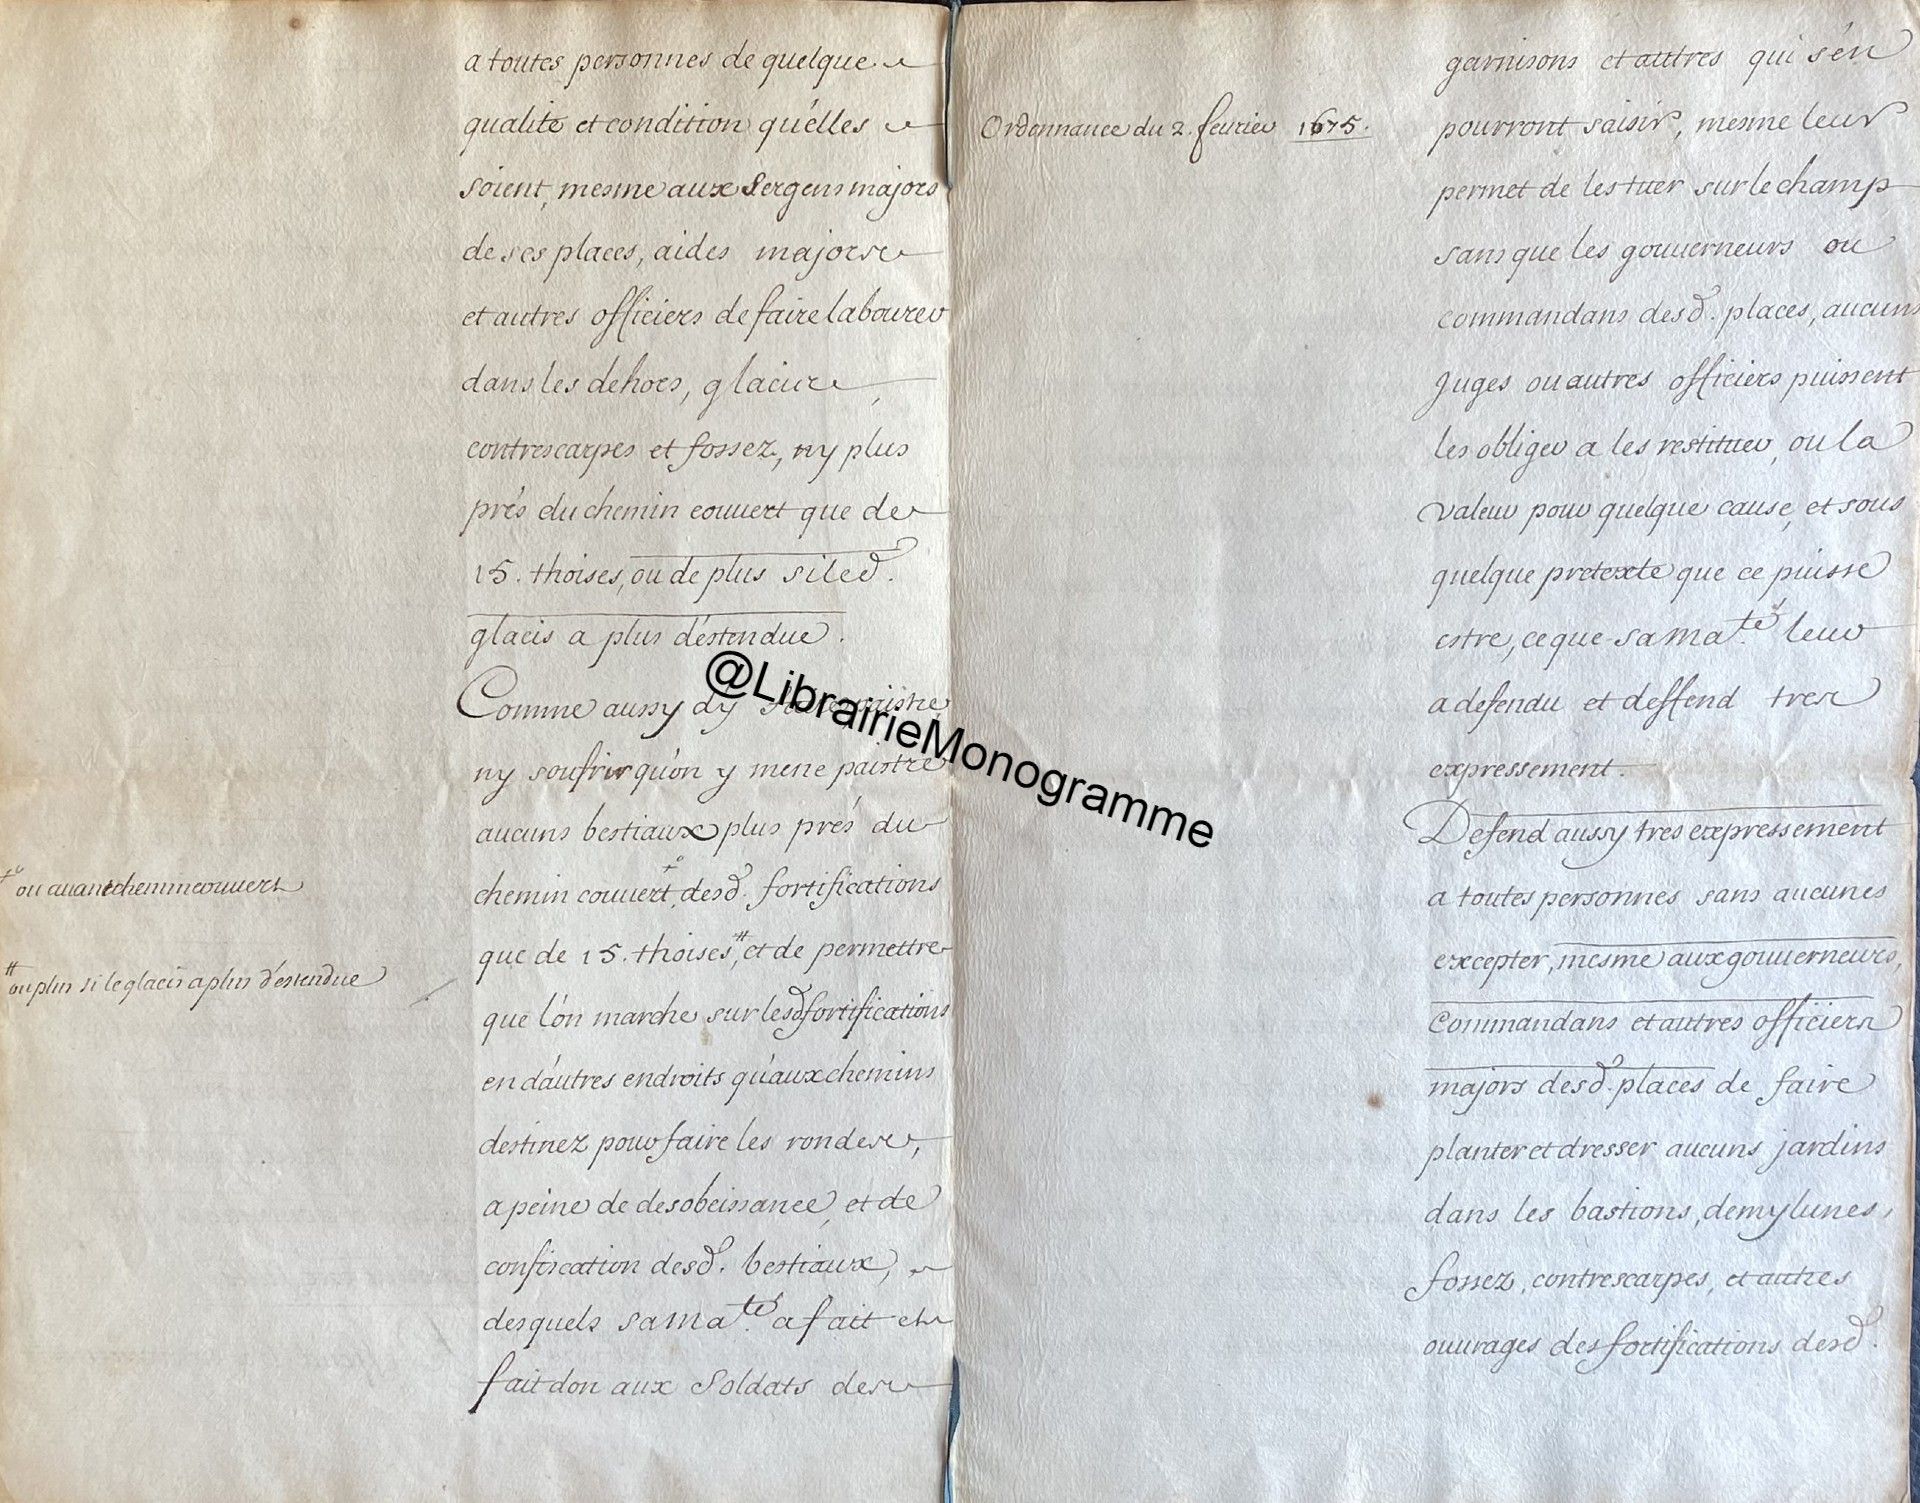 a toutes personnes de quelque
qualité et condition qu'elles
soient, mesme aux Sergens majors
de ses places, aides majors
et autres officiers de faire labourer
dans les dehors, glacis
contrescarpes et fossez, ny plus
prés du chemin couvert que de
15. thoises, ou de plus si led.
glacis a plus d'estendue.
Comme aussy d'y faire paistre,
ny soufrir qu'on y mene paistre
aucuns bestiaux plus prés du
chemin couvert, desd. fortifications
ou avant chemin couvert
que de 15. thoises,# et de permettre
# ou plus si le glacis a plus d'estendue
que l'on marche sur lesd fortifications
en d'autres endroits qu'aux chemins
destinez pour faire les rondes,
a peine de desobeissance, et de
confiscation desd. bestiaux,
desquels sa Ma.té a fait et
fait don aux Soldats des
Ordonnance du 2. fevrier 1675.
garnisons et autres qui s'en
pourront saisir, mesme leur
permet de les tuer sur le champ
sans que les gouverneurs ou
commandans desd. places, aucuns
Juges ou autres officiers puissent
les obliger a les restituer, ou la
valeur pour quelque cause, et sous
quelque pretexte que ce puisse
estre, ce que sa Ma.té leur
a defendu et deffend tres
expressement.
Defend aussy tres expressement
a toutes personnes sans aucunes
excepter, mesme aux gouverneurs,
Commandans et autres officiers
majors desd. places de faire
planter et dresser aucuns jardins
dans les bastions, demy lunes,
fossez, contrescarpes, et autres
ouvrages des fortifications desd.
@LibrairieMonogramme